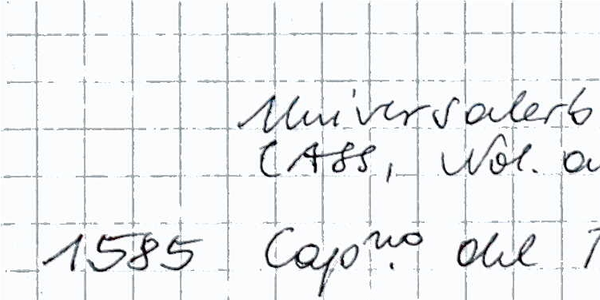 Universalerb
(ASS, Not. a
1585 Cap.no del